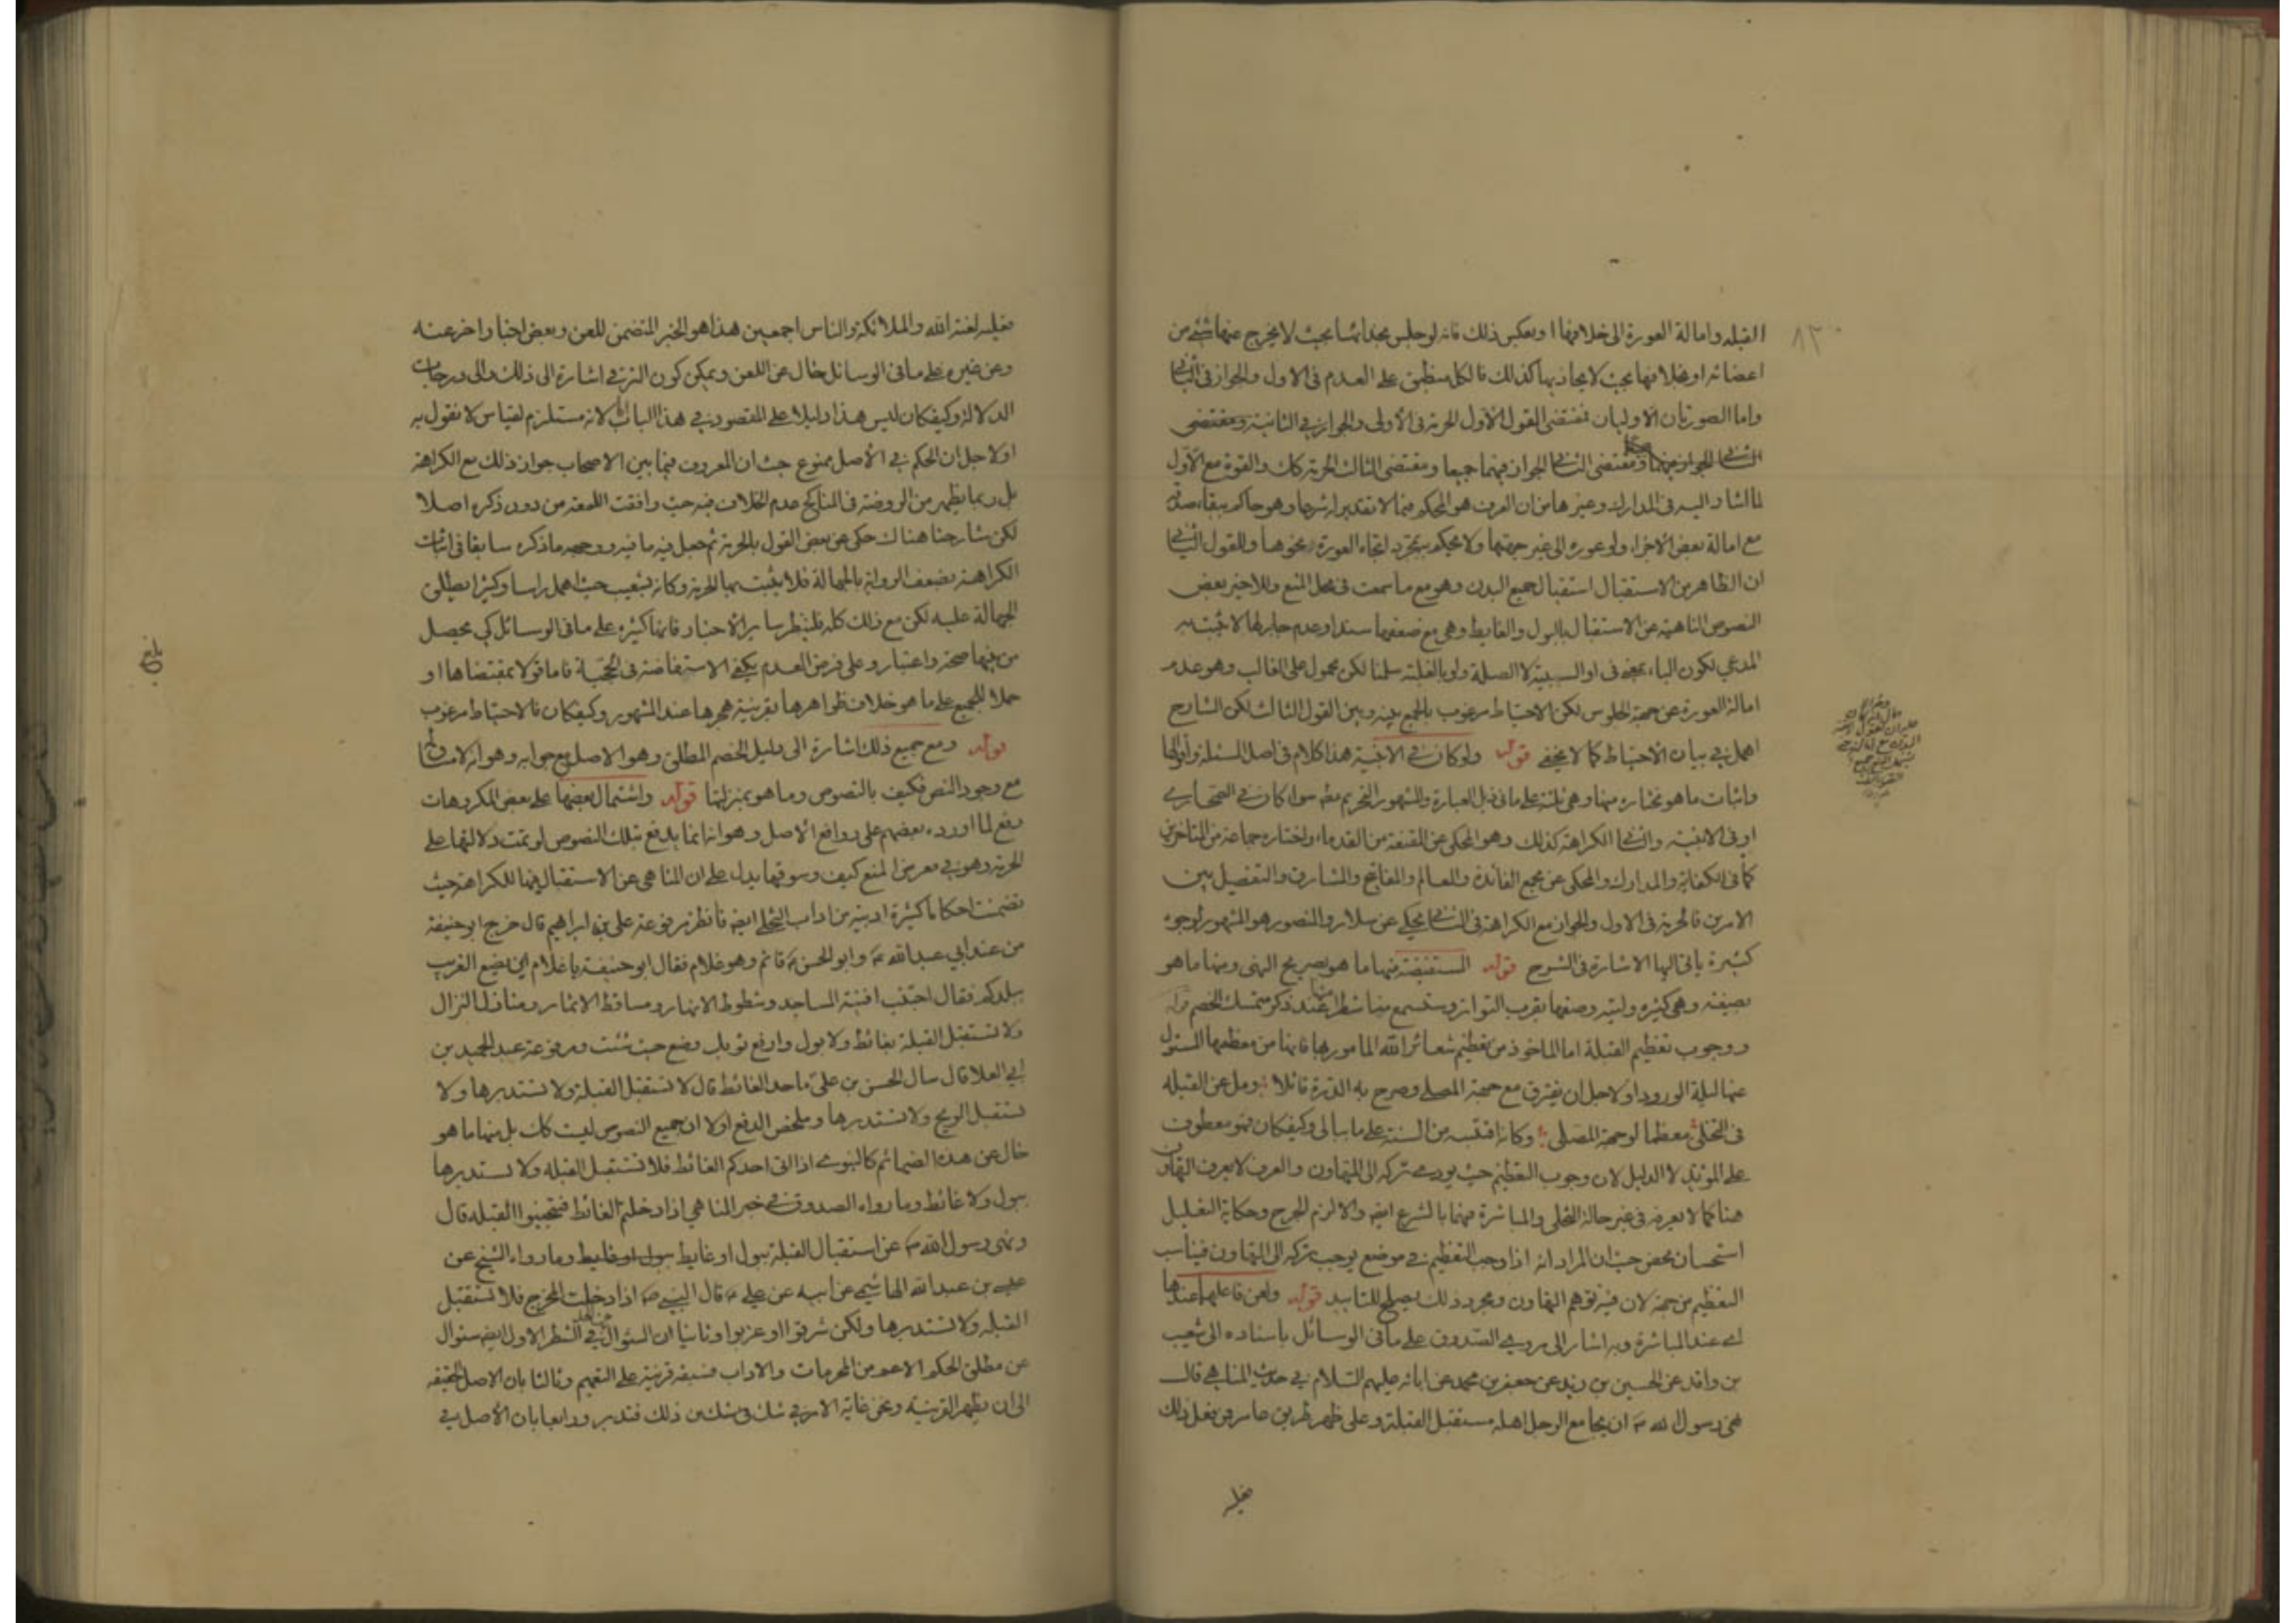 القبله وامالة العورة الى خلافها او بعكس ذلك فانه لو جلس بحذائها بحيث لا يخرج عنها شئ من
اعضائه او بخلافها بحيث لا يحاذيها كذلك فالكل منطبق على العدم فى الاول والجواز فى الثانى
واما الصورتان الاوليان فمقتضى القول الاول الحرمة فى الاولى والجواز فى الثانية ومقتضى
الثانى الجواز فيهما جميعا ومقتضى الثالث الحرمة كك والقوة مع الاول
لما اشار اليه فى المدارك وغيرها من ان العرف هو المحكم فيما لا تقدير له شرعا وهو حاكم ببقاء صدقه
مع امالة بعض الاجزاء ولو عورة الى غير جهتها ولا يحكم بمجرد اتجاه العورة نحوها وللقول الثانى
ان الظاهر من الاستقبال استقبال جميع البدن وهو مع ما سمعت فى محل المنع وللاخير بعض
النصوص الناهية عن الاستقبال بالبول والغايط وهى مع ضعفها سندا وعدم جابر لها لا يثبت به
المدعى لكون الباء بمعنى فى او السببية لا الصلة ولو بالغلبة سلمنا لكن محمول على الغالب وهو عدم
امالة العورة عن جهة الجلوس لكن الاحتياط مرغوب بالجمع بينه وبين القول الثالث لكن الشارح
اهمل فى بيان الاحتياط كما لا يخفى قوله ولو كان فى الابنية هذا كلام فى اصل المسئلة واقوالها
واثبات ما هو مختاره منها وهى ثلثة على ما فى ذيل العبارة والمشهور التحريم مطلقا سواء كان فى الصحارى
او فى الابنية والثانى الكراهة كذلك وهو المحكى عن المقنعة من القدماء واختاره جماعة من المتاخرين
كما فى الكفاية والمدارك والمحكى عن مجمع الفائدة والمعالم والمفاتيح والمشارق والتفصيل بين
الامرين فالحرمة فى الاول والجواز مع الكراهة فى الثانى يحكى عن سلار والمنصور هو المشهور لوجوه
كثيرة ياتى اليها الاشارة فى الشرح قوله المستفيضة منها ما هو بصريح النهى ومنها ما هو
بصيغته وهى كثيرة وليته وصفها بقرب التواتر وستسمع منا شطرا منها عند ذكر متمسك الخصم قوله
ووجوب تعظيم القبلة اما الماخوذ من تعظيم شعائر الله المامور بها فانها من معظمها المسئول
عنها ليلة الورود او لاجل ان يفترق مع جهة المصلى وصرح به الدرة قائلا ومل عن القبله
فى التخلى معظما لوجهة المصلى وكانه اقتبسه من السنة على ما ياتى وكيف كان فهو معطوف
على المؤيد لا الدليل لان وجوب التعظيم حيث يؤدى تركه الى التهاون والعرف لا يعرف التهاون
هنا كما لا يعرفه فى غير حالة التخلى والمباشرة فيهما بالشرع ايضا والا لزم الحرج وحكاية التعليل
استحسان محض حيث ان المراد انه اذا وجب التعظيم فى موضع يوجب تركه الى التهاون فيناسب
التعظيم من جهة لان فيه توهم التهاون ومجرد ذلك يصلح للتاييد قوله ولعن فاعلها عندها
اى عند المباشرة وبه اشار الى مروى الصدوق على ما فى الوسائل باسناده الى شعيب
بن واقد عن الحسين بن زيد عن جعفر بن محمد عن ابائه عليهم السلام فى حديث المناهى قال
نهى رسول الله ص ان يجامع الرجل اهله مستقبل القبلة وعلى ظهر طريق عامر فمن فعل ذلك
فعليه
فعليه لعنة الله والملائكة والناس اجمعين هذا هو الخبر المتضمن للعن وبعض اخبار اخر عنه
وعن غيره على ما فى الوسائل خال عن اللعن ويمكن كون الترقى اشارة الى ذلك والى درجات
الدلالة وكيف كان ليس هذا دليلا على المقصود فى هذا الباب لانه مستلزم لقياس لا نقول به
او لاجل ان الحكم فى الاصل ممنوع حيث ان المعروف فيما بين الاصحاب جواز ذلك مع الكراهة
بل ربما يظهر من الروضة فى المناكح عدم الخلاف فيه حيث وافقت اللمعة من دون ذكره اصلا
لكن شارحنا هناك حكى عن بعض القول بالحرمة ثم جعل فيه ما فيه ووجهه ما ذكره سابقا فى اثبات
الكراهة بضعف الرواية بالجهالة فلا يثبت بها الحرمة وكانه لشعيب حيث اهمل راسا وكثيرا يطلق
الجهالة عليه لكن مع ذلك كله فلينظر سائر الاخبار فانها كثيرة على ما فى الوسائل كى يحصل
من بينها صحة واعتبار وعلى فرض العدم يكفى الاستفاضة فى الحجية فاما قولا بمقتضاها او
حملا للجميع على ما هو خلاف ظواهرها بقرينة هجرها عند المشهور وكيف كان فالاحتياط مرغوب
قوله ومع جميع ذلك اشارة الى دليل الخصم المطلق وهو الاصل مع جوابه وهو انه لا مساق لها
مع وجود النص فكيف بالنصوص وما هو بمنزلتها قوله واشتمال بعضها على بعض المكروهات
دفع لما اورده بعضهم على روافع الاصل وهو انه انما يدفع بتلك النصوص لو تمت دلالتها على
الحرمة وهو فى معرض المنع كيف وسوقها يدل على ان المناهى عن الاستقبال فيها للكراهة حيث
تضمنت احكاما كثيرة ادبية من اداب التخلى ايضا فانظر مرفوعة على بن ابراهيم قال خرج ابو حنيفة
من عند ابي عبد الله ع وابو الحسن ع قائم وهو غلام فقال ابو حنيفة يا غلام اين يضع الغريب
ببلدكم فقال اجتنب افنية المساجد وشطوط الانهار ومساقط الاثمار ومنازل النزال
ولا تستقبل القبلة بغائط ولا بول وارفع ثوبك وضع حيث شئت ومرفوعة عبد الحميد بن
ابي العلا قال سال الحسن بن على ع ما حد الغائط قال لا تستقبل القبلة ولا تستدبرها ولا
تستقبل الريح ولا تستدبرها وملخص الدفع اولا ان جميع النصوص ليست كك بل منها ما هو
خال عن هذه الضمائم كالنبوى اذا اتى احدكم الغائط فلا تستقبل القبله ولا تستدبرها
ببول ولا غائط وما رواه الصدوق فى خبر المناهى اذا دخلتم الغائط فتجنبوا القبله قال
ونهى رسول الله ص عن استقبال القبلة ببول او غايط وما رواه الشيخ عن
عيسى بن عبد الله الهاشمى عن ابيه عن على ع قال النبى ص اذا دخلت المخرج فلا تستقبل
القبله ولا تستدبرها ولكن شرقوا او غربوا وثانيا ان السئوال فى الشطر الاول ايضا سئوال
عن مطلق الحكم الاعم من المحرمات والاداب فسبقه قرينة على التعميم وثالثا بان الاصل الحقيقة
الى ان يظهر القرينة ونحن غاية الامر فى شك فى شك من ذلك فتدبر ورابعا بان الاصل فى